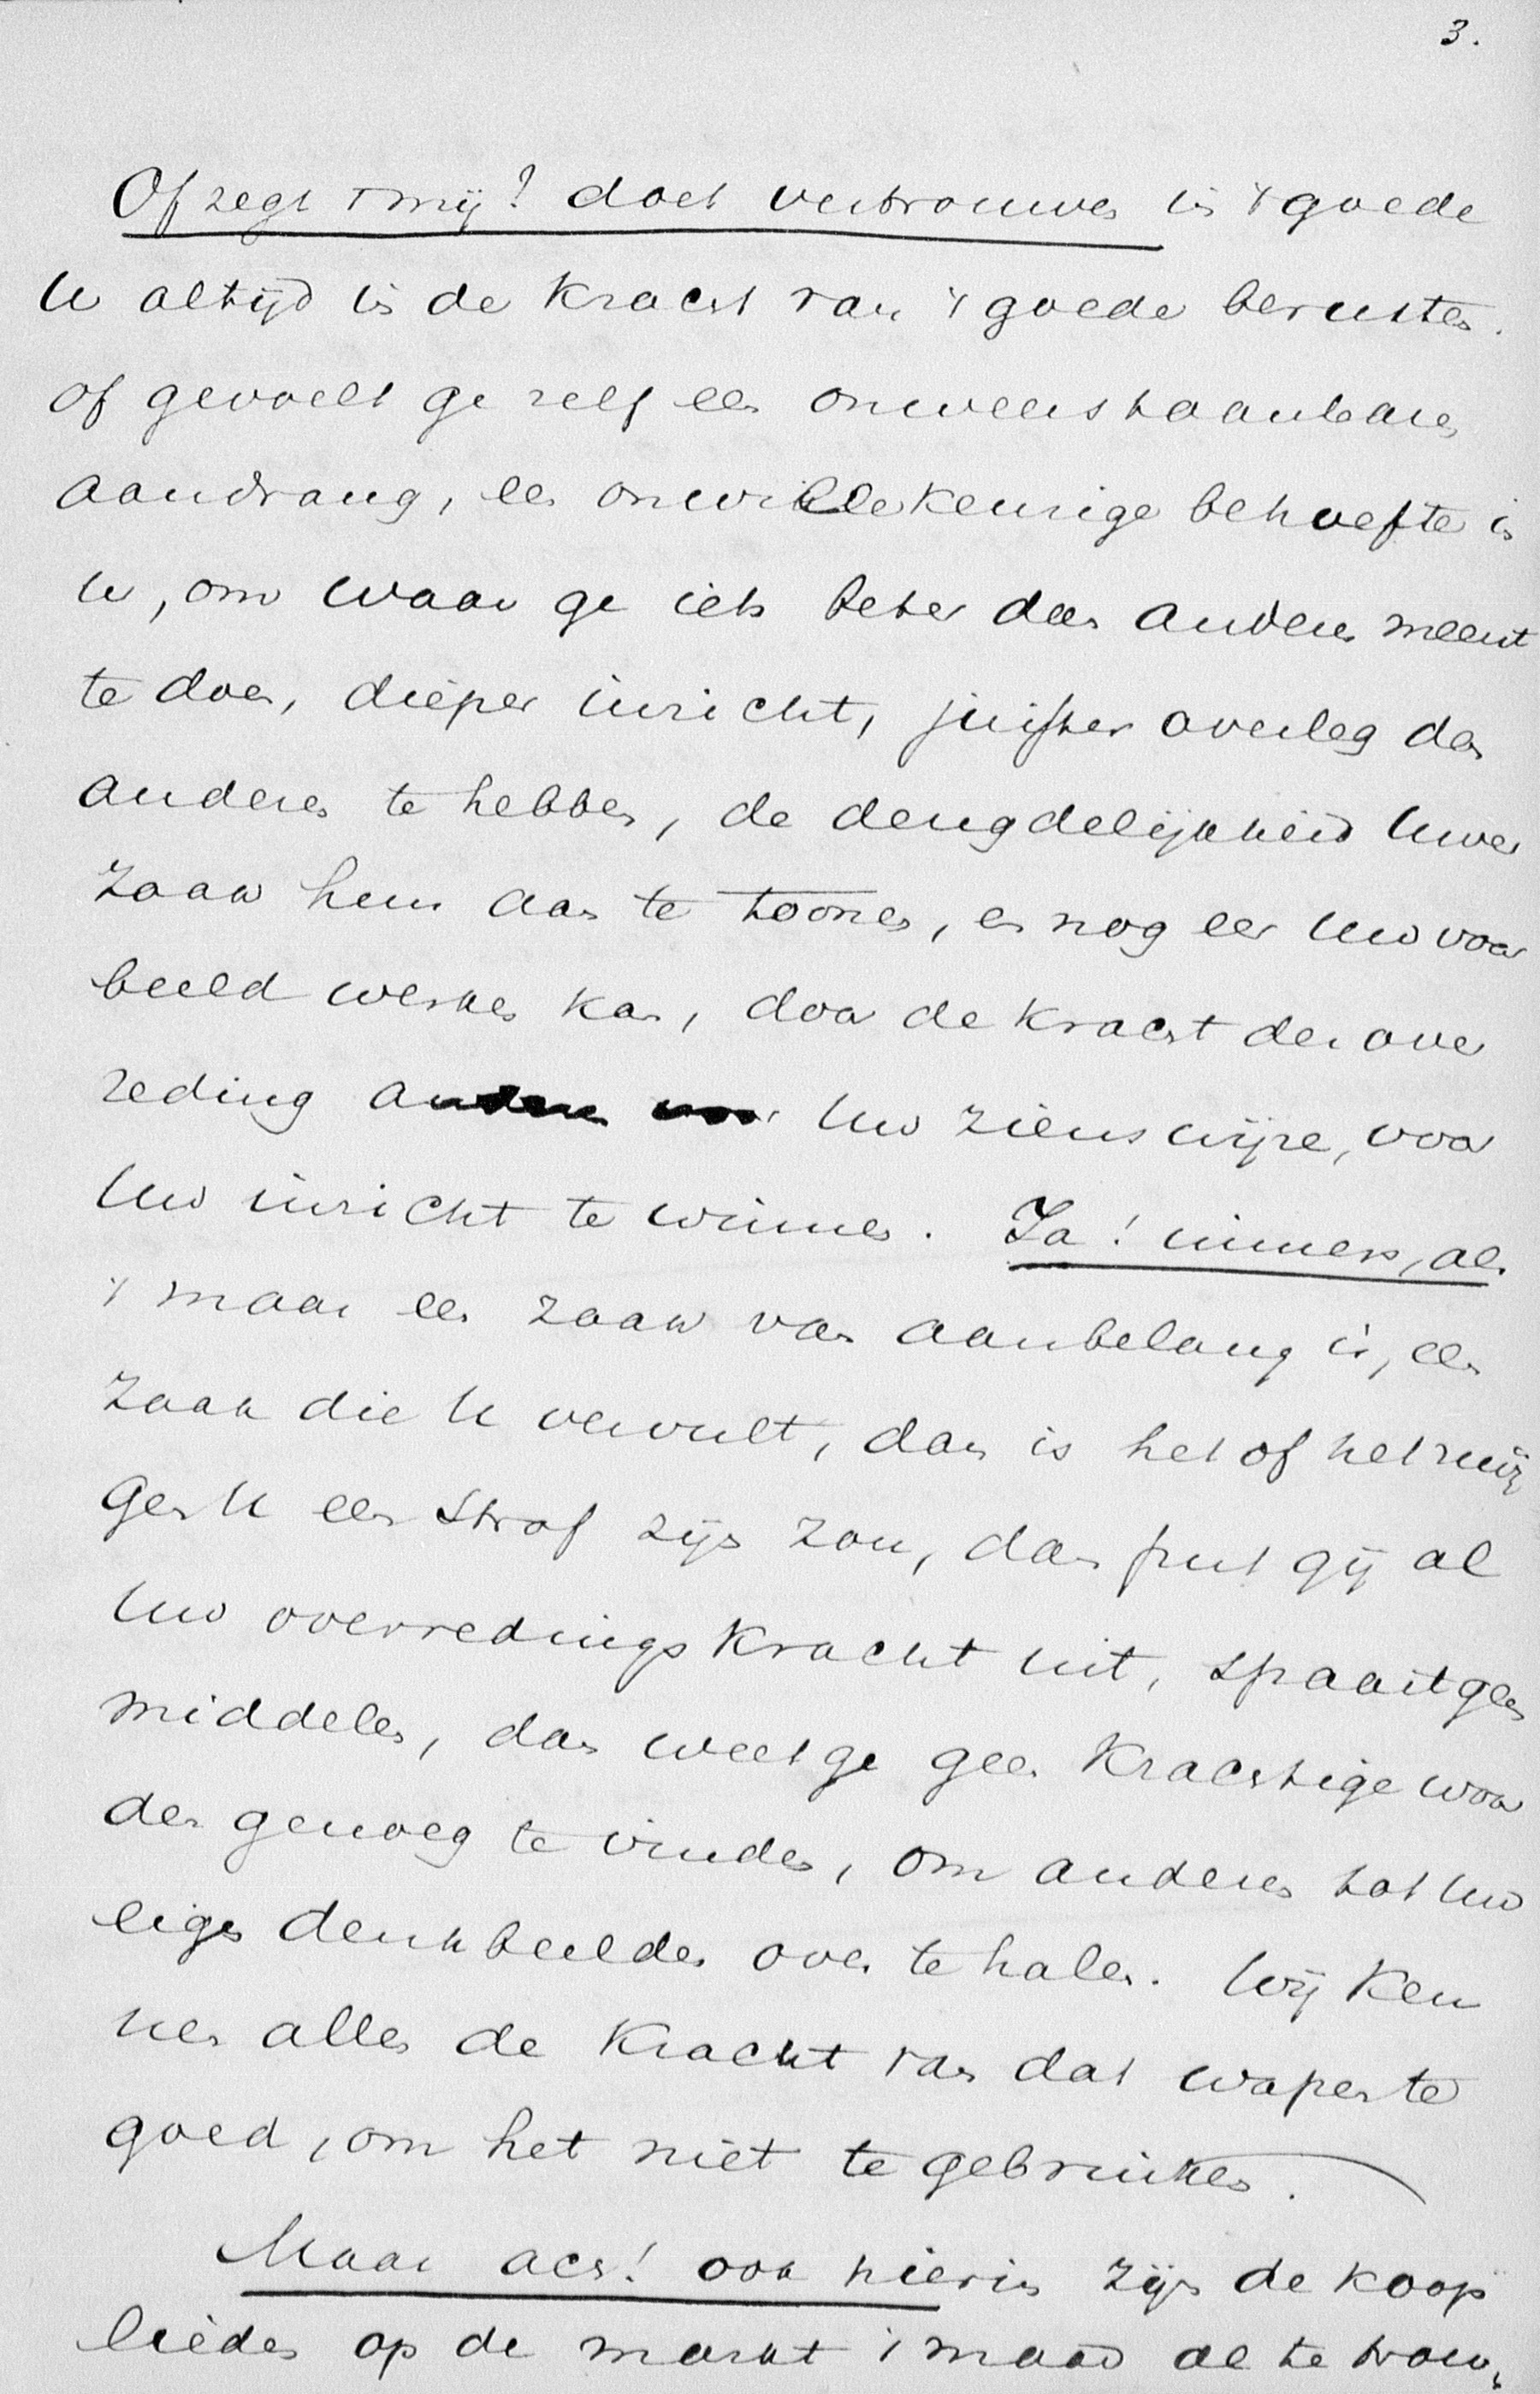 3.
Of zegt mij? doet vertrouwen in 't goede
U altijd in de kracht van 't goede berusten.
of gevoelt ge zelf een onweerstaanbaren
aandrang, een onwillekeurige behoefte in
U, om waar ge iets beter dan anderen meent
te doen, dieper inzicht, juister overleg dan
anderen te hebben, de deugdelijkheid Uwer
zaak hun aan te toonen, en nog eer Uw voor
beeld werken kan, door de kracht der over
reding anderen voor Uw zienswijze, voor
Uw inzicht te winnen. Ja! immers, als
't maar een zaak van aanbelang is, een
zaak die U vervult, dan is het of het zwij
gen U een straf zijn zou, dan put gij al
Uw overredingskracht uit, spaart geen
middelen, dan weet ge geen krachtige woor
den genoeg te vinden, om anderen tot Uw
eigen denkbeelden over te halen. Wij ken
nen allen de kracht van dat wapen te
goed, om het niet te gebruiken.
Maar ach! ook hierin zijn de koop
lieden op de markt 't maar al te